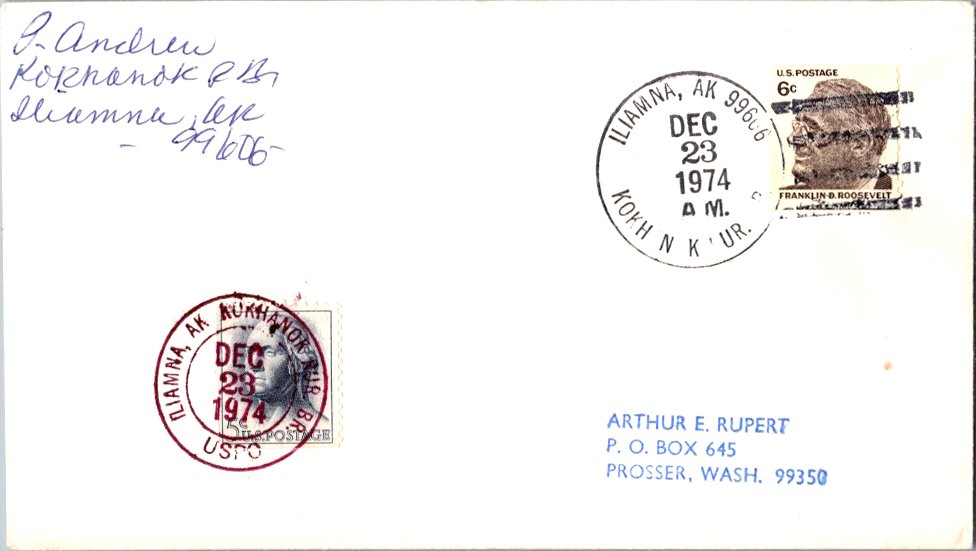 P. Andrew
Kokhanok R Br
Iliamna, AK
- 99606-
U.S. POSTAGE
6c
FRANKLIN D. ROOSEVELT
ILIAMNA, AK 99606
DEC
23
1974
A M.
KOKH N K UR.
ILIAMNA, AK KOKHANOK RUR. BR.
DEC
23
1974
USPO
5c U.S. POSTAGE
ARTHUR E. RUPERT
P. O. BOX 645
PROSSER, WASH. 99350